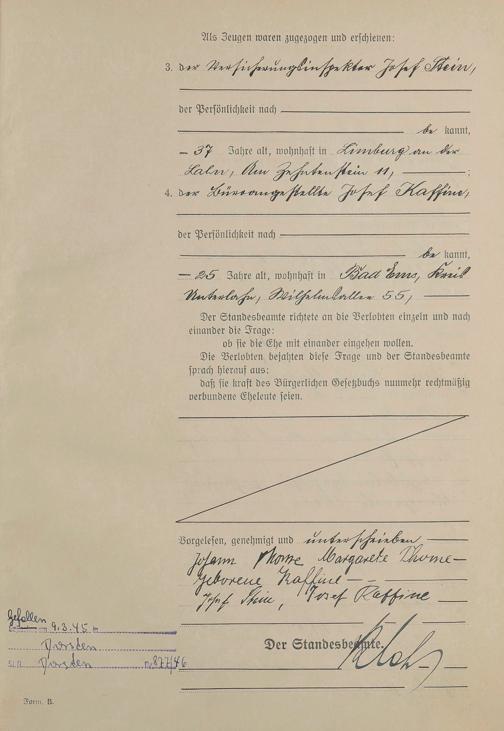 Als Zeugen waren zugezogen und erschienen:
3. der Versicherungsinspektor Josef Stein,
der Persönlichkeit nach
be kannt,
37 Jahre alt, wohnhaft in Limburg an der
Lahn, Am Zehntenstein 11, ;
4. der Büroangestellte Josef Kaffine,
der Persönlichkeit nach
be kannt,
25 Jahre alt, wohnhaft in Bad Ems, Kreis
Unterlahn, Wilhelmsallee 55,
Der Standesbeamte richtete an die Verlobten einzeln und nach
einander die Frage:
ob sie die Ehe mit einander eingehen wollen.
Die Verlobten bejahten diese Frage und der Standesbeamte
sprach hierauf aus:
daß sie kraft des Bürgerlichen Gesetzbuchs nunmehr rechtmäßig
verbundene Eheleute seien.
Vorgelesen, genehmigt und unterschrieben
Johann Thome Margarete Thome
geborene Kaffine
Josef Stein, Josef Kaffine
Der Standesbeamte.
Gefallen
9.3.45
Dorsten
Dorsten Nr. 877/46
Form. B.